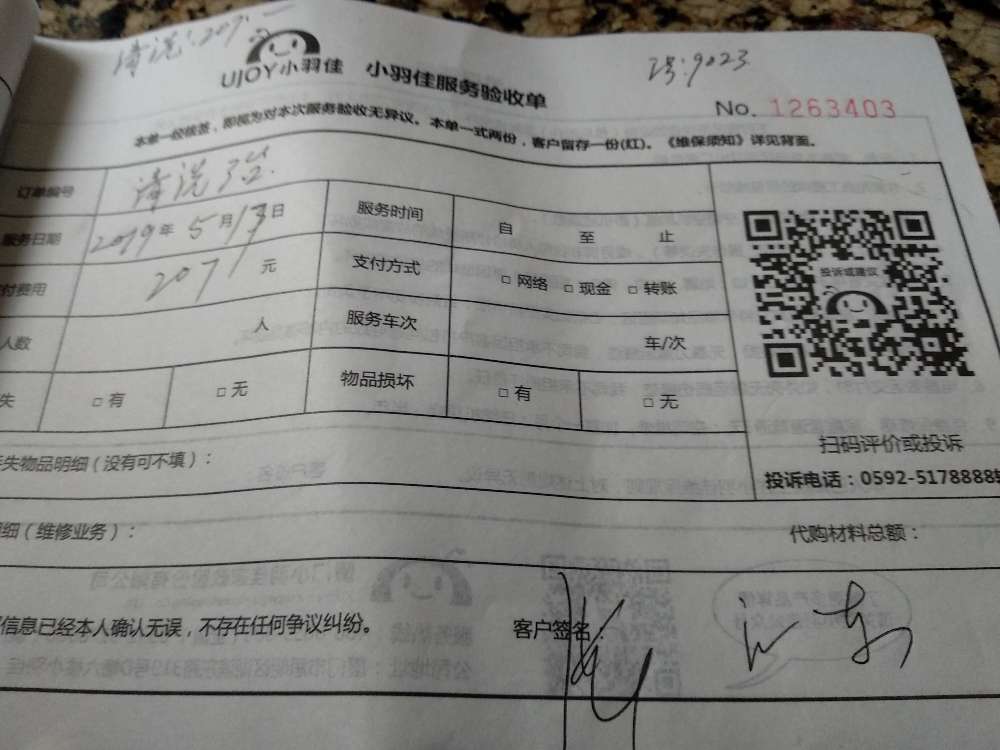 清洗:207.
号:9023
UJOY小羽佳 小羽佳服务验收单
No. 1263403
本单一经核签,即视为对本次服务验收无异议。本单一式两份,客户留存一份(红)。《维保须知》详见背面。
订单编号 清洗
服务日期 2019年5月13日 服务时间 自 至 止
付费用 207 元 支付方式 □ 网络 □ 现金 □ 转账
人数 人 服务车次 车/次
失 □ 有 □ 无 物品损坏 □ 有 □ 无
投诉或建议
扫码评价或投诉
投诉电话:0592-5178888
失物品明细(没有可不填):
细(维修业务): 代购材料总额:
信息已经本人确认无误,不存在任何争议纠纷。 客户签名